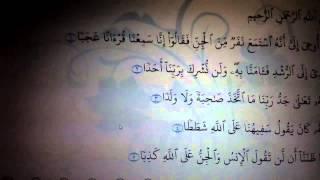 ٱللَّهِ ٱلرَّحْمَٰنِ ٱلرَّحِيمِ
أُوحِىَ إِلَىَّ أَنَّهُ ٱسْتَمَعَ نَفَرٌ مِّنَ ٱلْجِنِّ فَقَالُوٓا۟ إِنَّا سَمِعْنَا قُرْءَانًا عَجَبًا
إِلَى ٱلرُّشْدِ فَـَٔامَنَّا بِهِۦ وَلَن نُّشْرِكَ بِرَبِّنَآ أَحَدًا
تَعَٰلَىٰ جَدُّ رَبِّنَا مَا ٱتَّخَذَ صَٰحِبَةً وَلَا وَلَدًا
كَانَ يَقُولُ سَفِيهُنَا عَلَى ٱللَّهِ شَطَطًا
ظَنَنَّآ أَن لَّن تَقُولَ ٱلْإِنسُ وَٱلْجِنُّ عَلَى ٱللَّهِ كَذِبًا